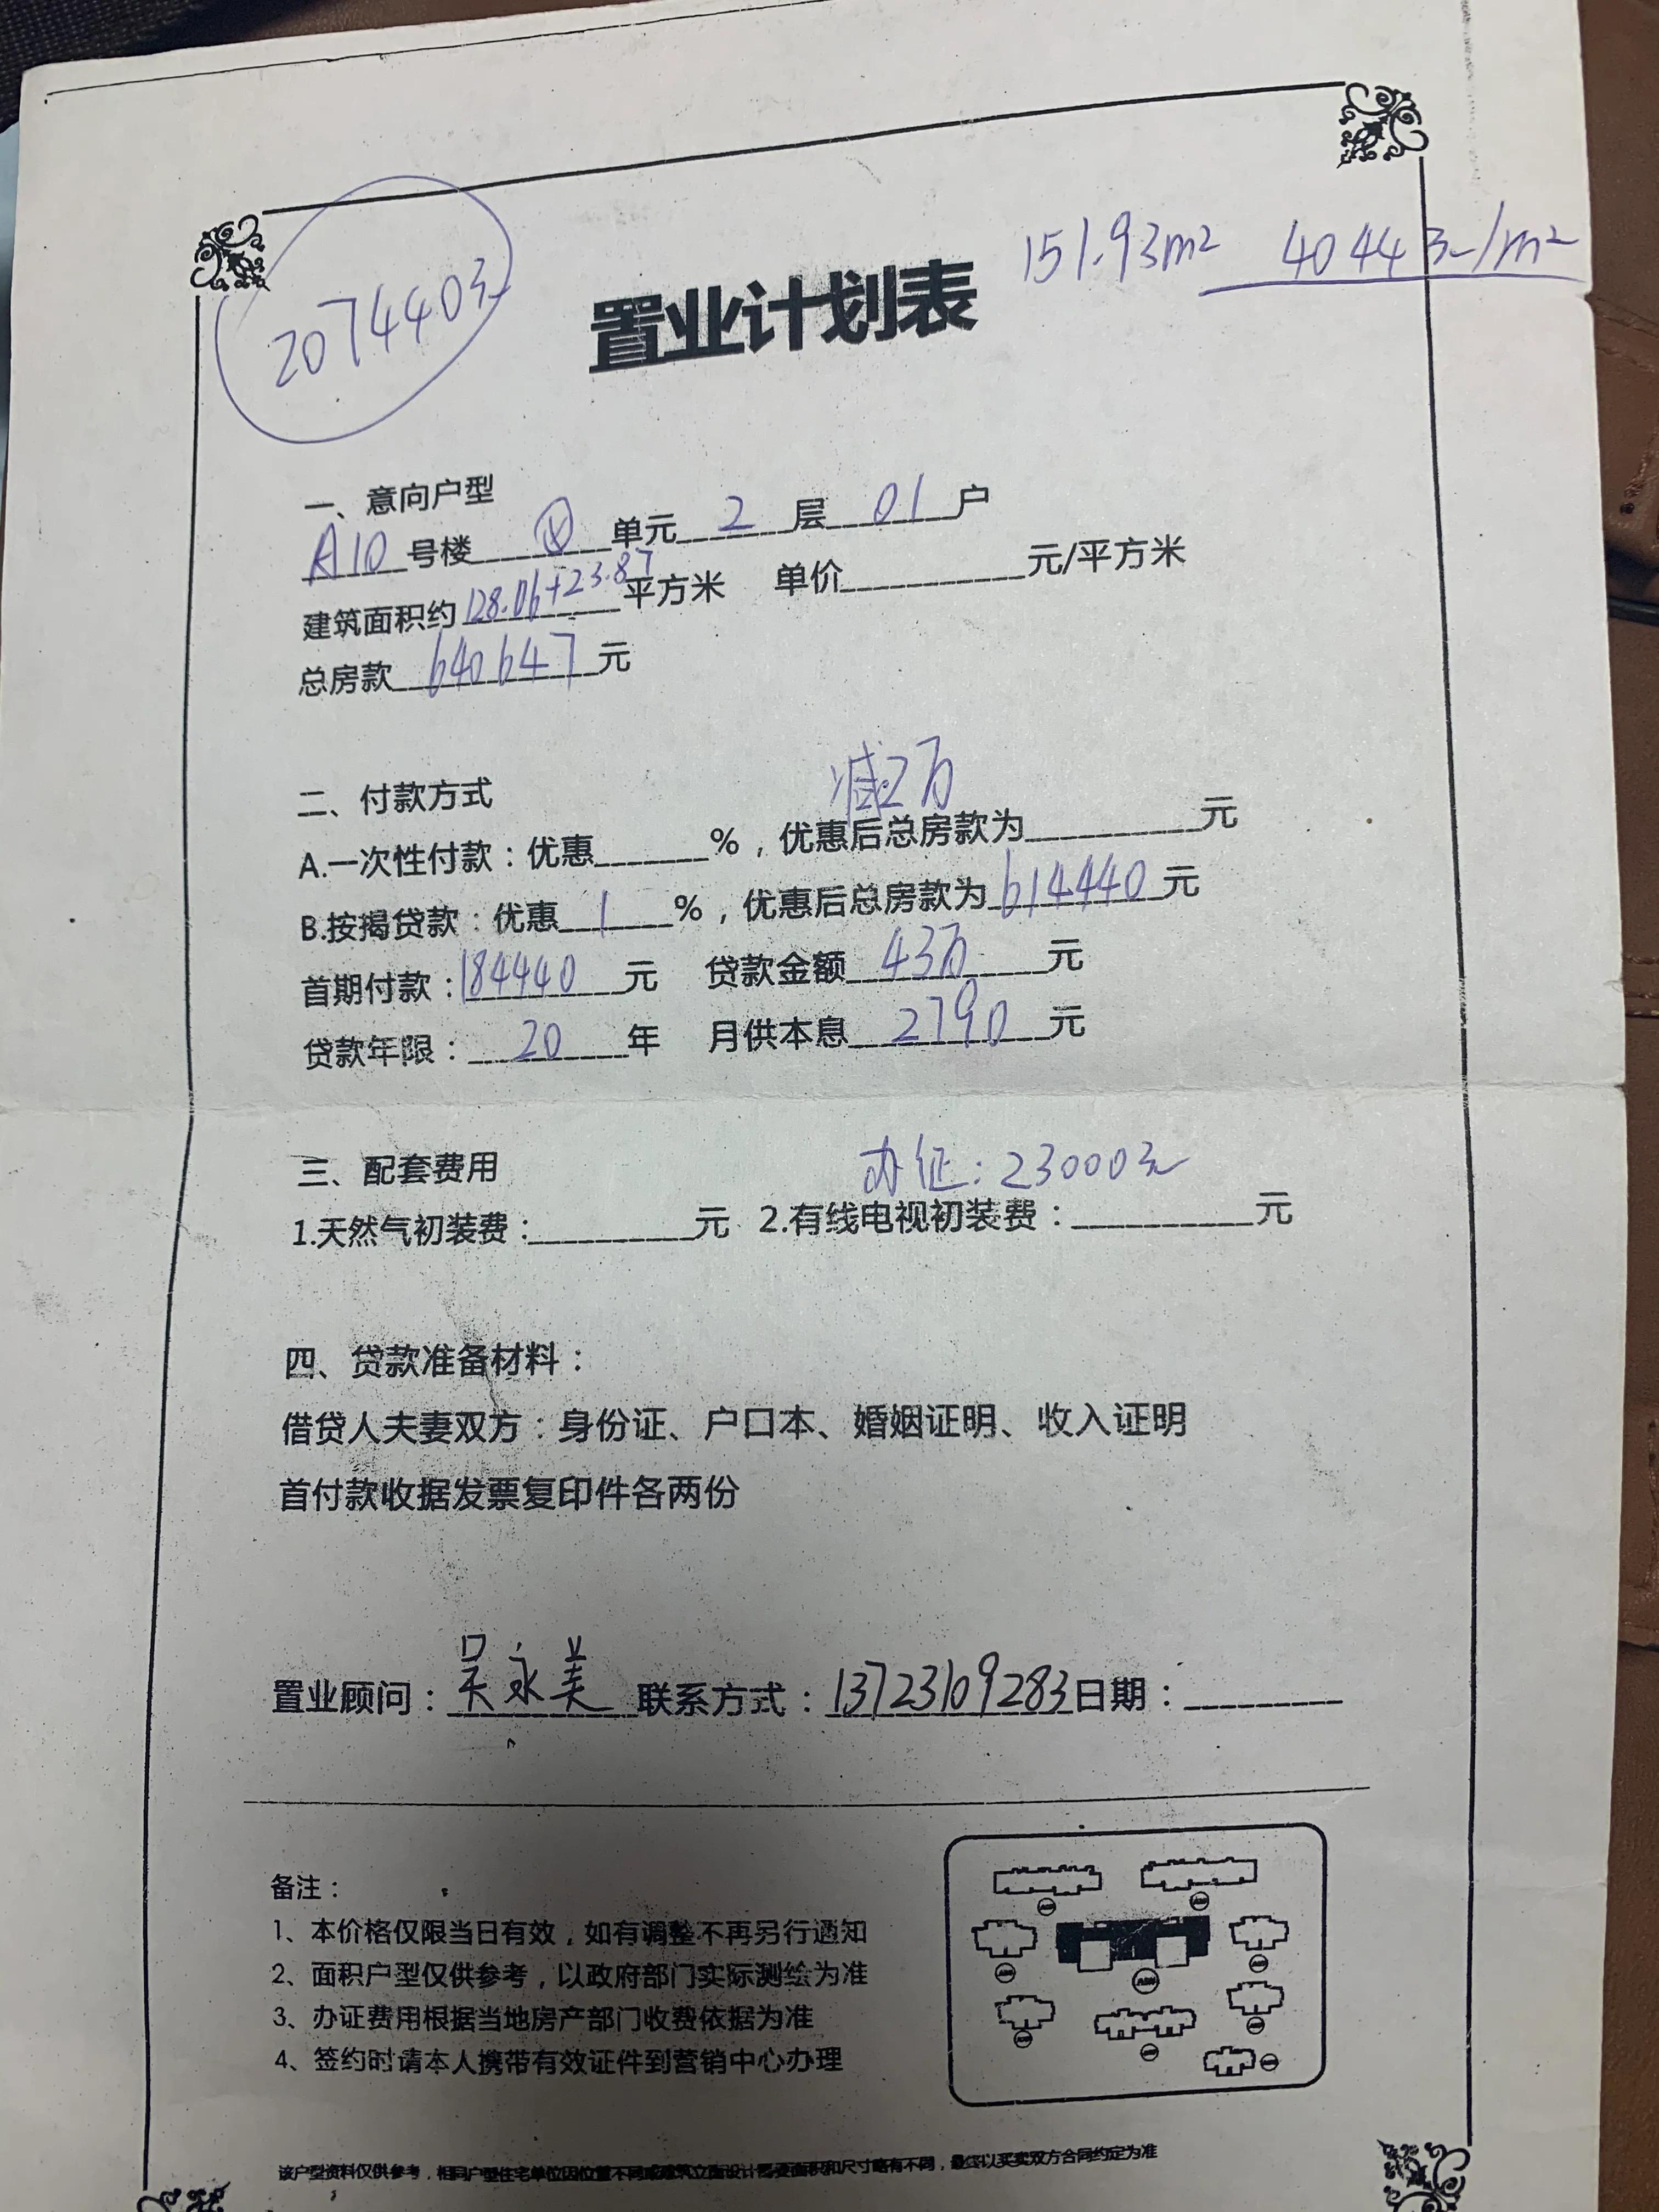 置业计划表
151.93m² 4044元/m²
207440元
一、意向户型
A10号楼 单元2层01户
建筑面积约128.06+23.87平方米 单价 元/平方米
总房款640647元
二、付款方式
减2万
A.一次性付款：优惠 %，优惠后总房款为 元
B.按揭贷款：优惠1%，优惠后总房款为614440元
首期付款：184440元 贷款金额43万元
贷款年限：20年 月供本息2790元
三、配套费用
办证：23000元
1.天然气初装费： 元 2.有线电视初装费： 元
四、贷款准备材料：
借贷人夫妻双方：身份证、户口本、婚姻证明、收入证明
首付款收据发票复印件各两份
置业顾问：吴永美 联系方式：13723109283 日期：
备注：
1、本价格仅限当日有效，如有调整不再另行通知
2、面积户型仅供参考，以政府部门实际测绘为准
3、办证费用根据当地房产部门收费依据为准
4、签约时请本人携带有效证件到营销中心办理
该户型资料仅供参考，相同户型住宅单位因位置不同或建筑立面设计需要面积和尺寸略有不同，最终以买卖双方合同约定为准